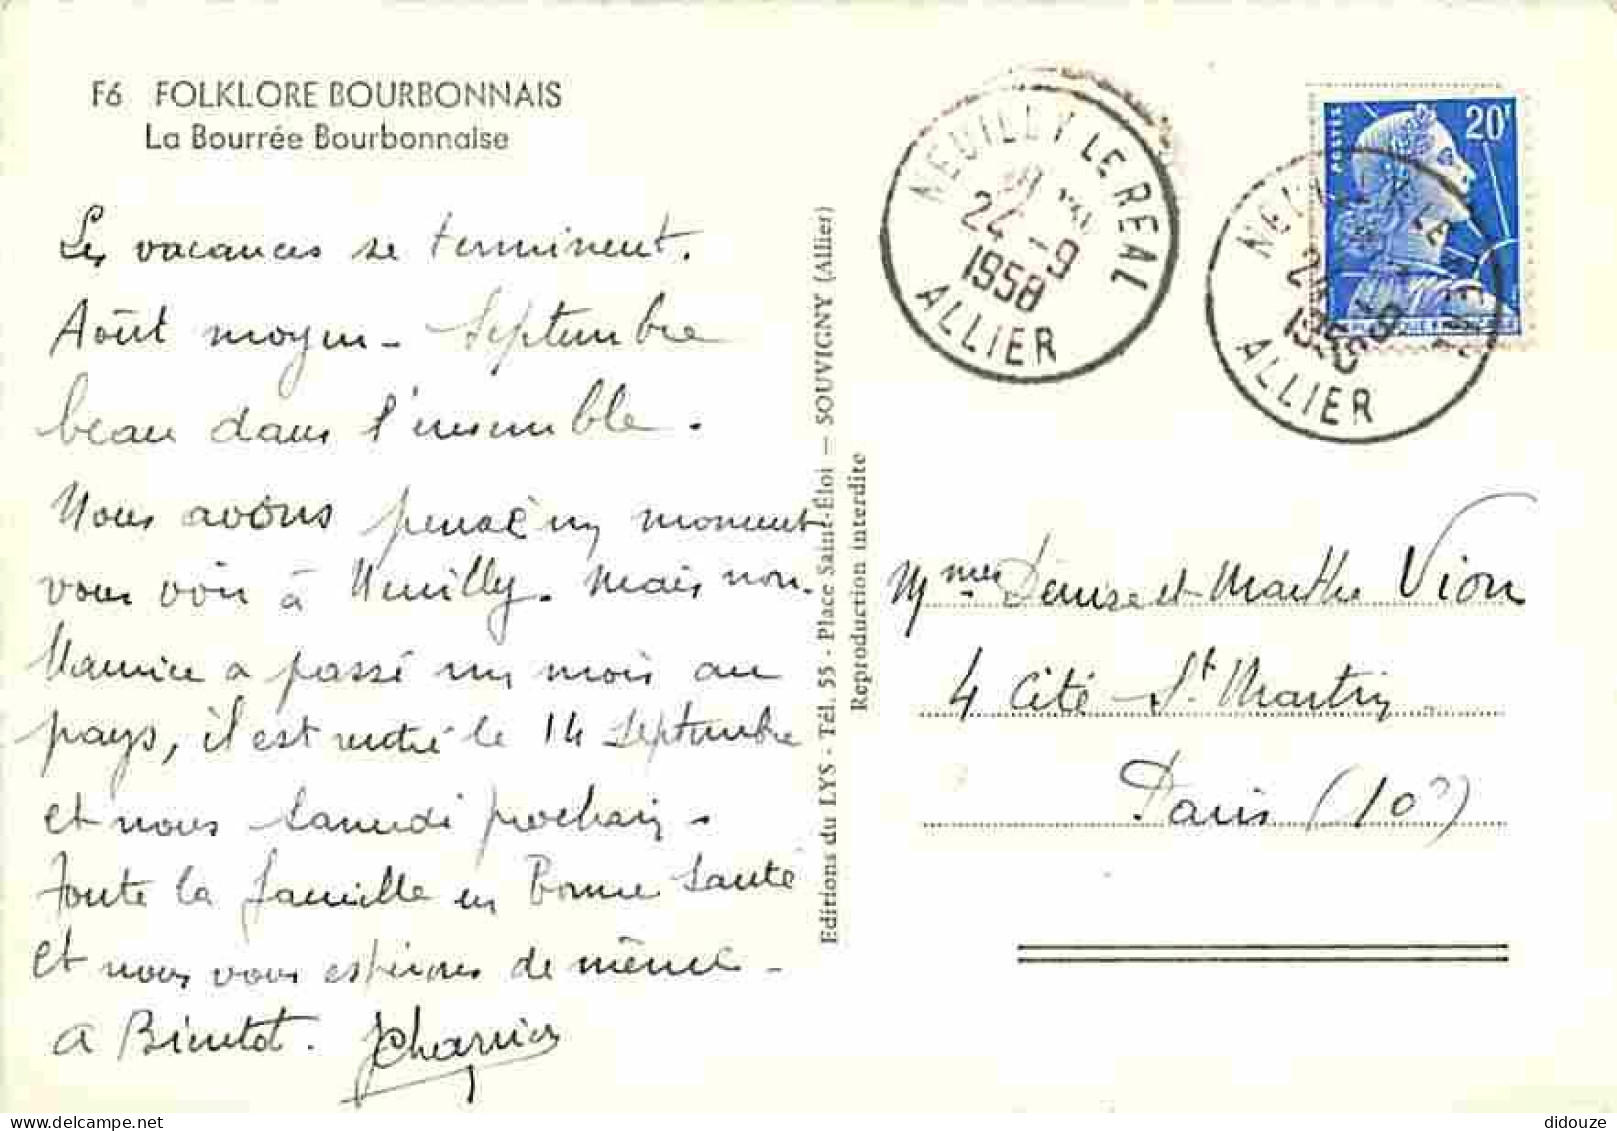 F6 FOLKLORE BOURBONNAIS
La Bourrée Bourbonnaise
Les vacances se terminent.
Août moyen - Septembre
beau dans l'ensemble.
Nous avons pensé un moment
vous voir à Neuilly. Mais non.
Maurice a passé un mois au
pays, il est rentré le 14 Septembre
et nous Samedi prochain.
Toute la famille en Bonne Santé
et nous vous espérons de même -
A Bientot. JCharvier
Editions du LYS - Tél. 55 - Place Saint-Éloi — SOUVIGNY (Allier)
Reproduction interdite
NEUILLY LE REAL
24 -9
1958
ALLIER
20F
POSTES
NEUILLY LE REAL
24 -9
1958
ALLIER
Mmes Denise et Marthe Vion
4 Cité St Martin
Paris (10e)
didouze